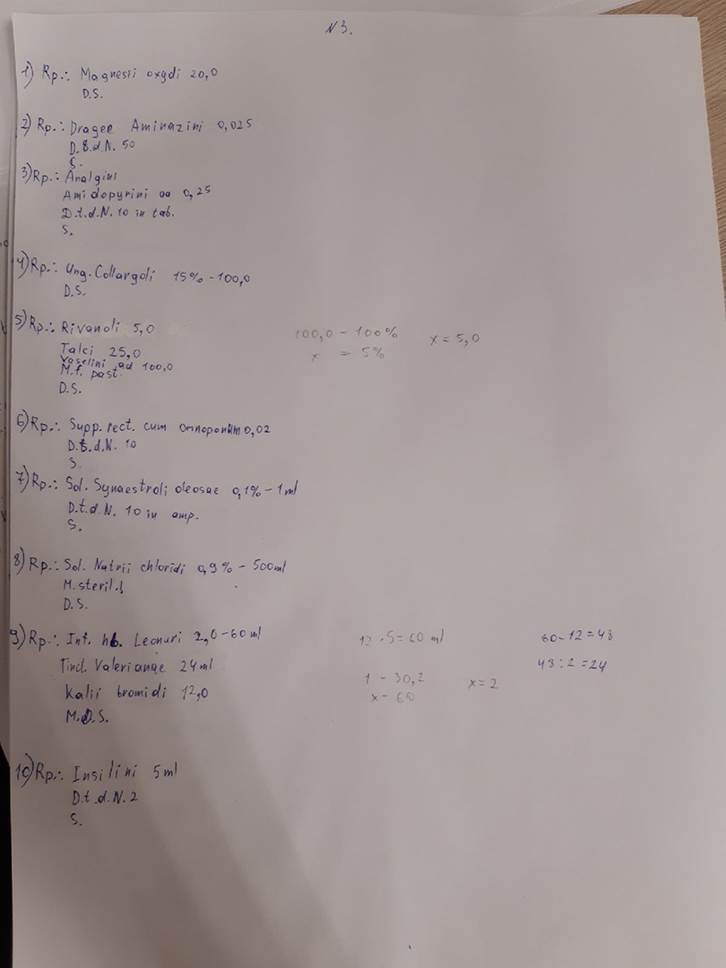 N3.
1) Rp.: Magnesii oxydi 20,0
D.S.
2) Rp.: Dragee Aminazini 0,025
D.t.d.N. 50
S.
3) Rp.: Analgini
Amidopyrini aa 0,25
D.t.d.N. 10 in tab.
S.
4) Rp.: Ung. Collargoli 15% - 100,0
D.S.
5) Rp.: Rivanoli 5,0
100,0 - 100%
x = 5%
x = 5,0
Talci 25,0
Vaselini ad 100,0
M.f. past.
D.S.
6) Rp.: Supp. rect. cum 0,02
D.t.d.N. 10
S.
7) Rp.: Sol. Synaestroli oleosae 0,1% - 1 ml
D.t.d.N. 10 in amp.
S.
8) Rp.: Sol. Natrii chloridi 0,9% - 500 ml
M. steril.!
D.S.
9) Rp.: Inf. hb. Leonuri 2,0 - 60 ml
12 · 5 = 60 ml
60 - 12 = 48
Tinct. Valerianae 24 ml
48 : 2 = 24
1 - 30,2
x - 60
x = 2
Kalii bromidi 12,0
M.D.S.
10) Rp.: Insilini 5 ml
D.t.d.N. 2
S.